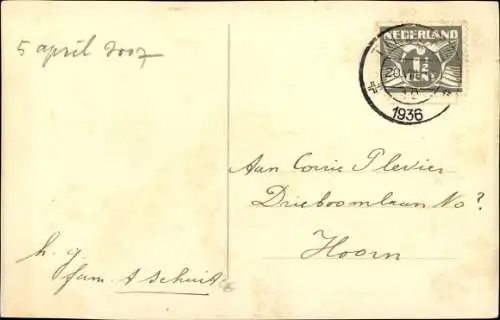 5 april 2007
NEDERLAND
1½
CENT
20
1936
Aan Corrie Plevier
Drieboomlaan No?
Hoorn
h. g.
fam. A Schuit